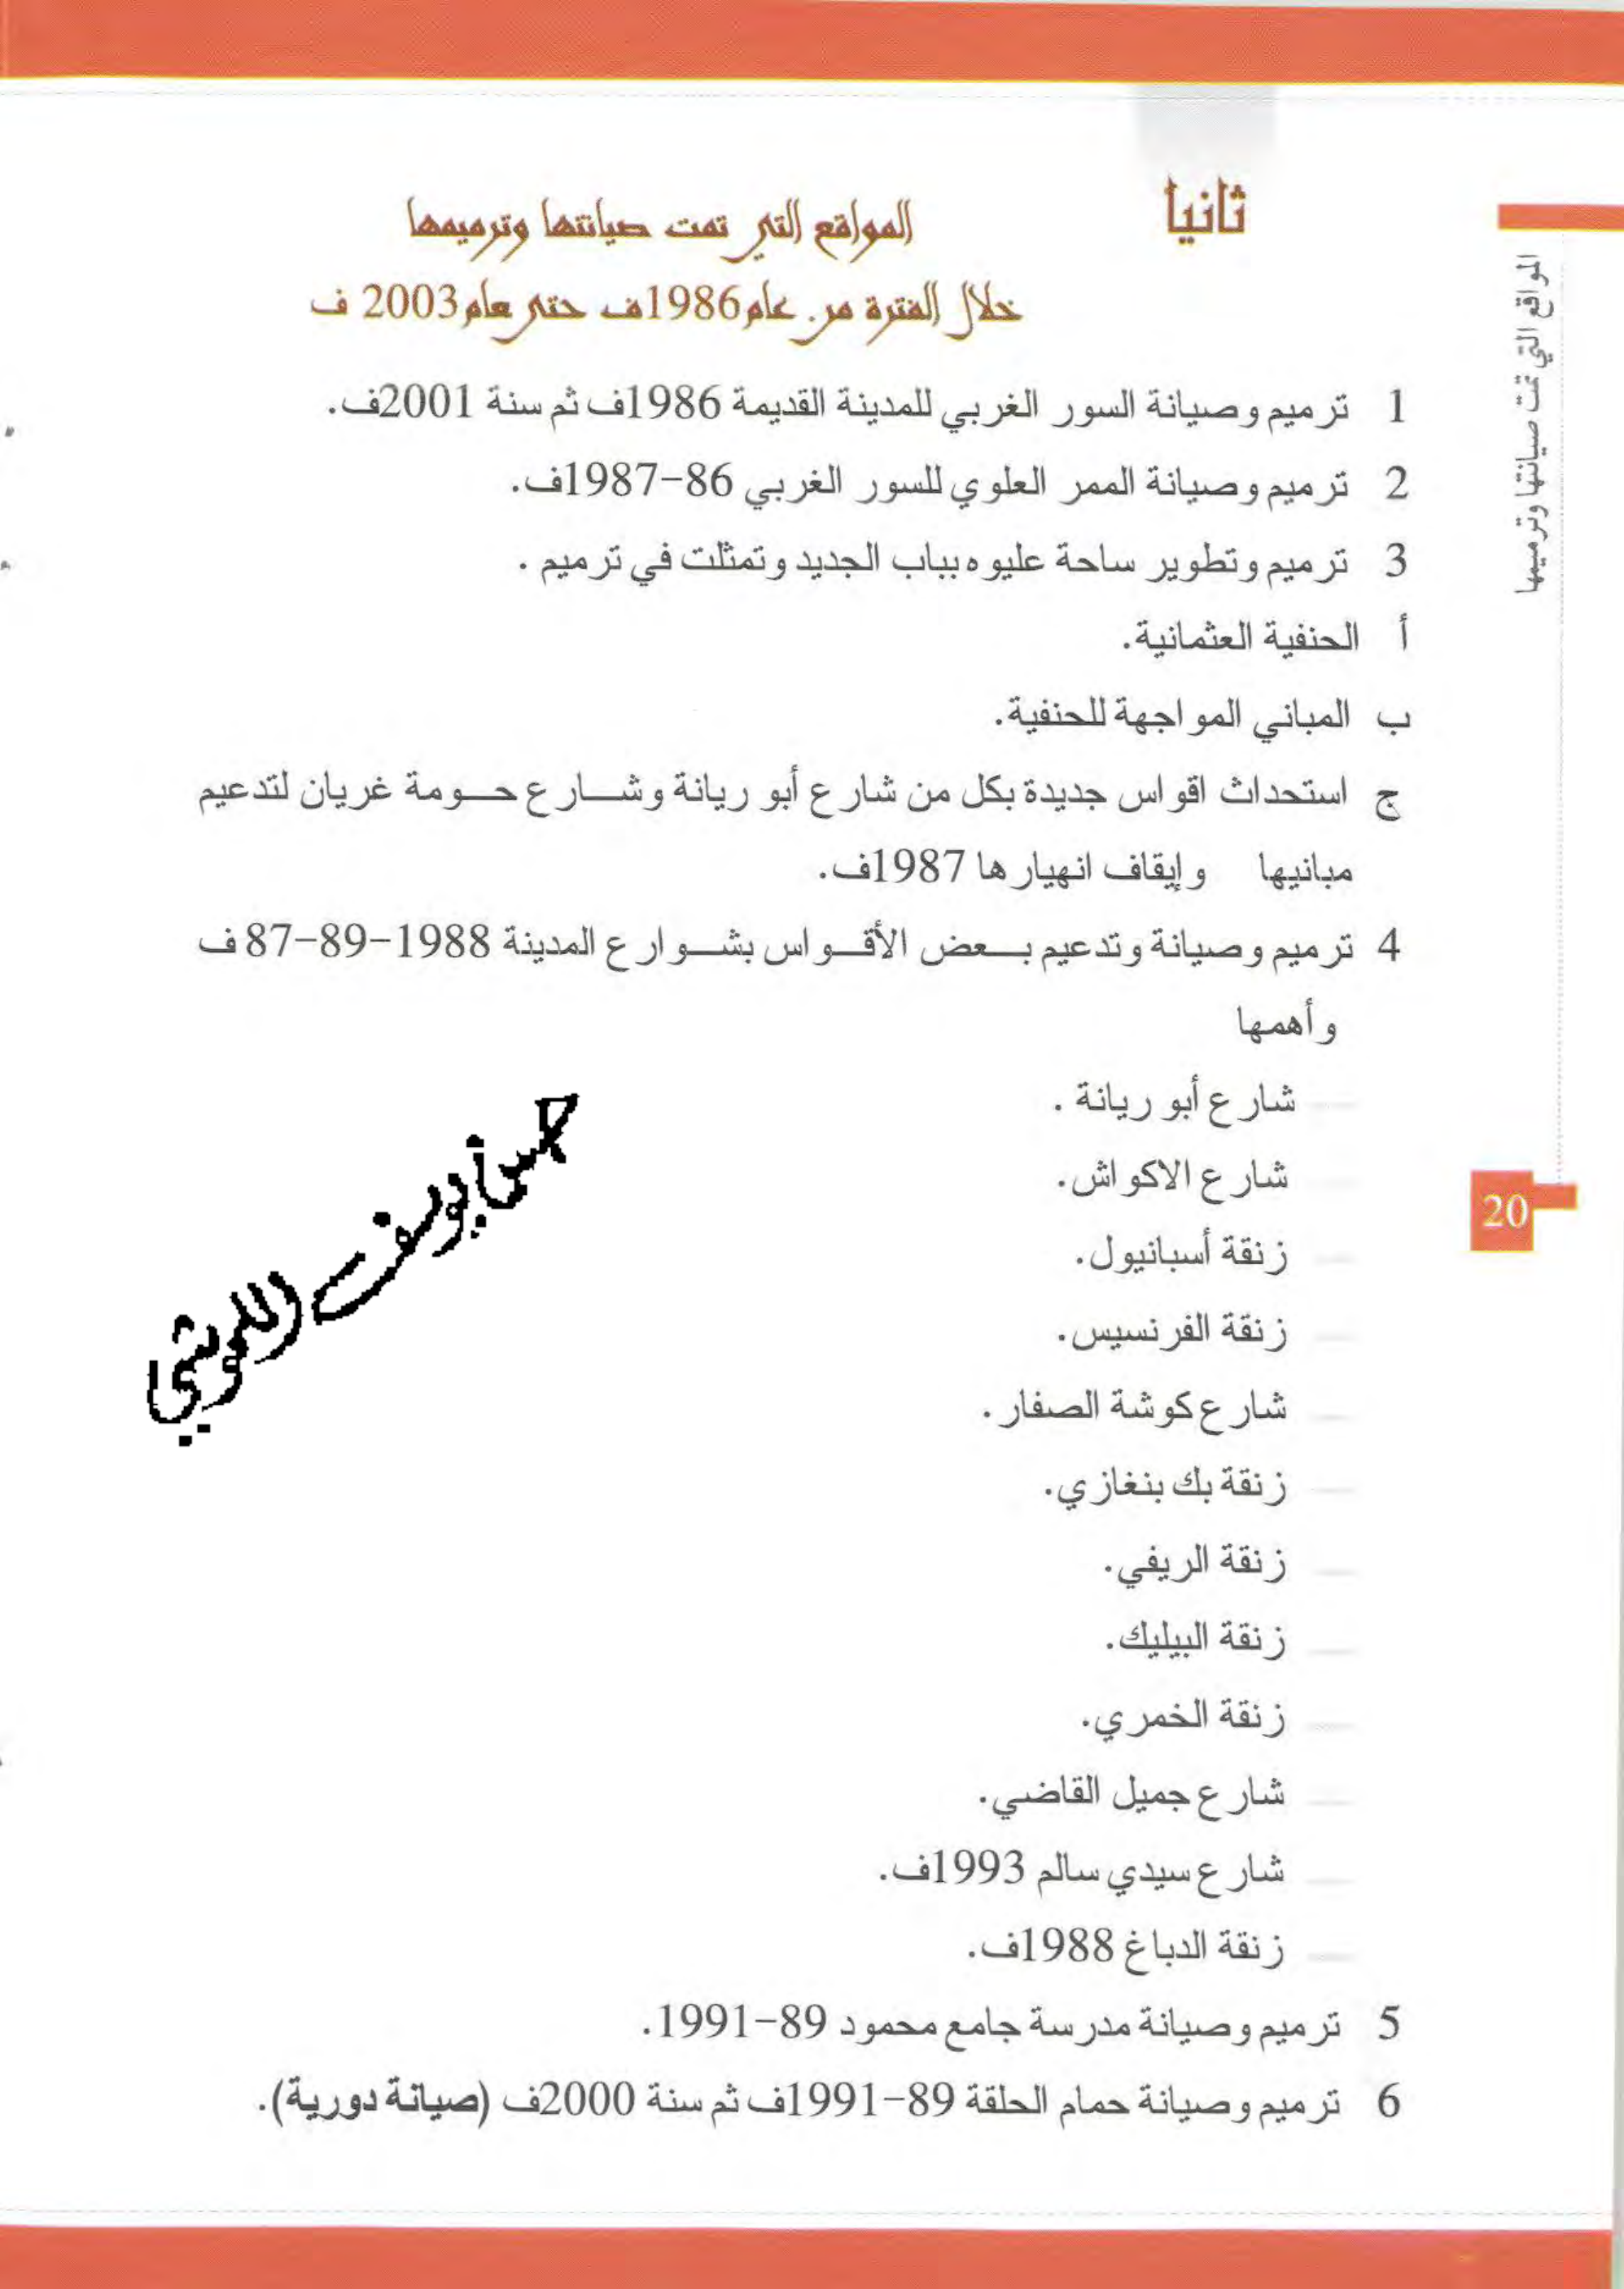 ثانيا
المواقع التي تمت صيانتها وترميمها
خلال الفترة من عام 1986ف حتى عام 2003 ف
1 ترميم وصيانة السور الغربي للمدينة القديمة 1986ف ثم سنة 2001ف.
2 ترميم وصيانة الممر العلوي للسور الغربي 86-1987ف.
3 ترميم وتطوير ساحة عليوه بباب الجديد وتمثلت في ترميم .
أ الحنفية العثمانية.
ب المباني المواجهة للحنفية.
ج استحداث اقواس جديدة بكل من شارع أبو ريانة وشارع حومة غريان لتدعيم
مبانيها وإيقاف انهيارها 1987ف.
4 ترميم وصيانة وتدعيم بعض الأقواس بشوارع المدينة 1988-89-87 ف
وأهمها
— شارع أبو ريانة .
— شارع الاكواش.
— زنقة أسبانيول.
— زنقة الفرنسيس.
— شارع كوشة الصفار.
— زنقة بك بنغازي.
— زنقة الريفي.
— زنقة البيليك.
— زنقة الخمري.
— شارع جميل القاضي.
— شارع سيدي سالم 1993ف.
— زنقة الدباغ 1988ف.
5 ترميم وصيانة مدرسة جامع محمود 89-1991.
6 ترميم وصيانة حمام الحلقة 89-1991ف ثم سنة 2000ف (صيانة دورية).
المواقع التي تمت صيانتها وترميمها
20